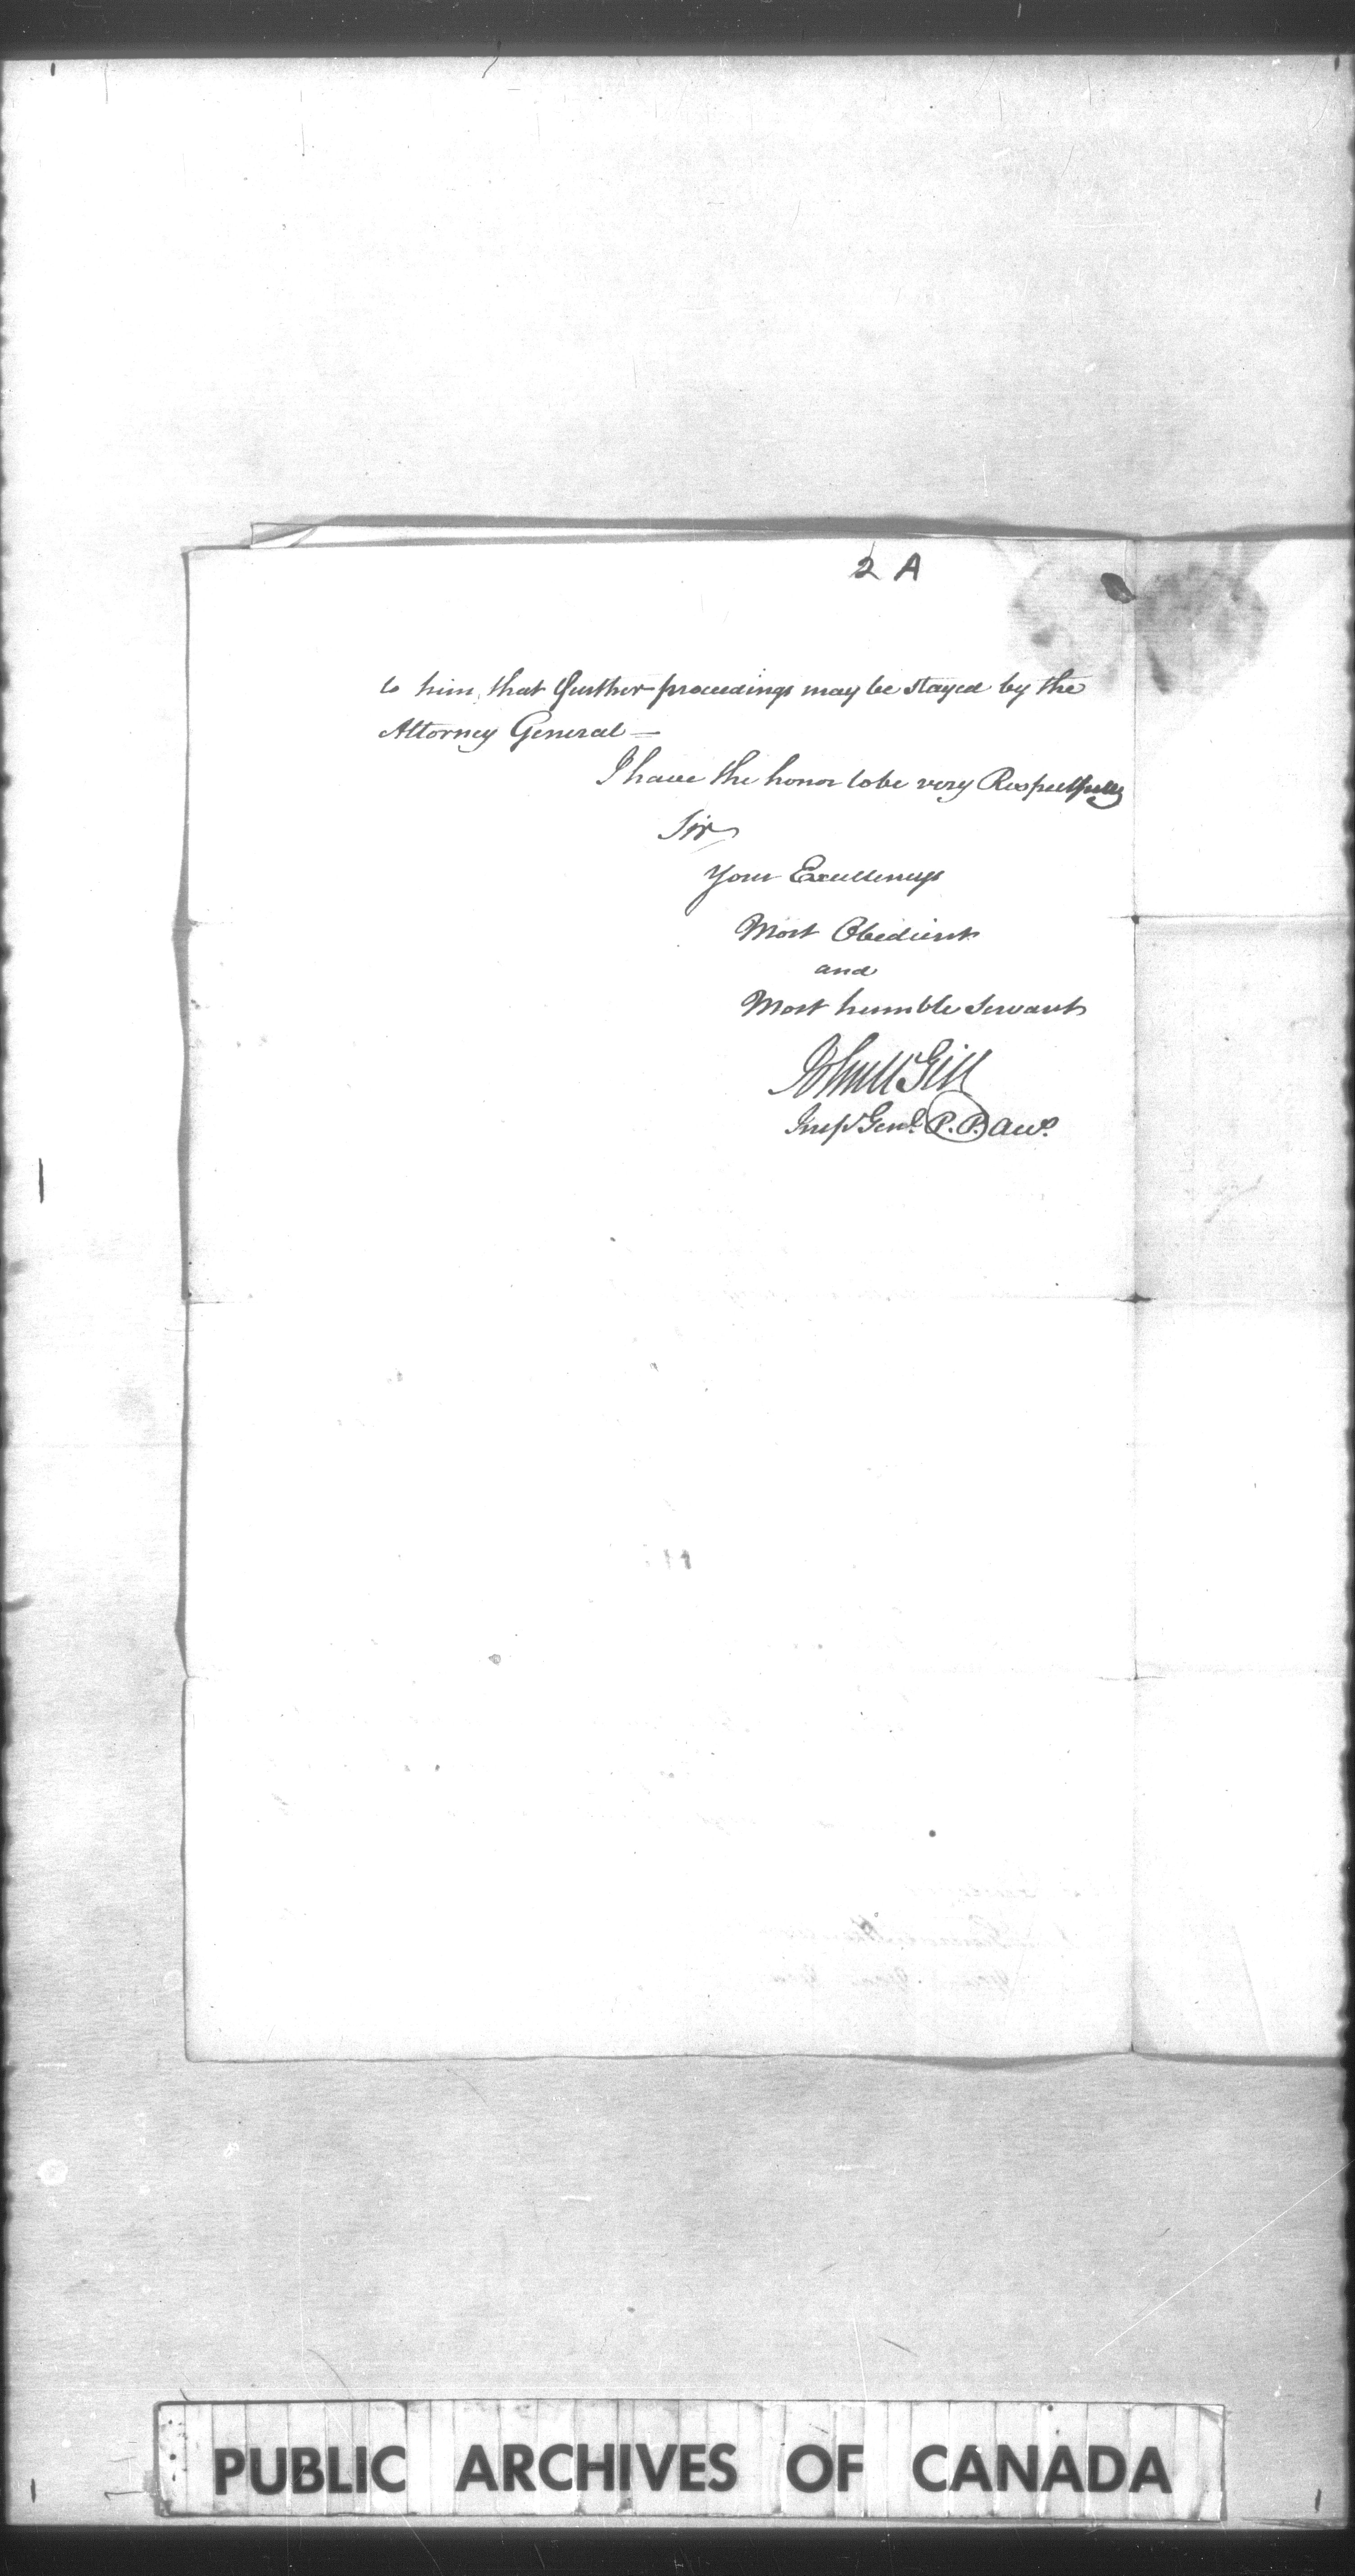 2 A
to him, that further proceedings may be stayed by the
Attorney General —
I have the honor to be very Respectfully
Sir
Your Excellencys
Most Obedient
and
Most humble Servant
John McGill
Insp. Genl. P. P. Accts.
PUBLIC ARCHIVES OF CANADA